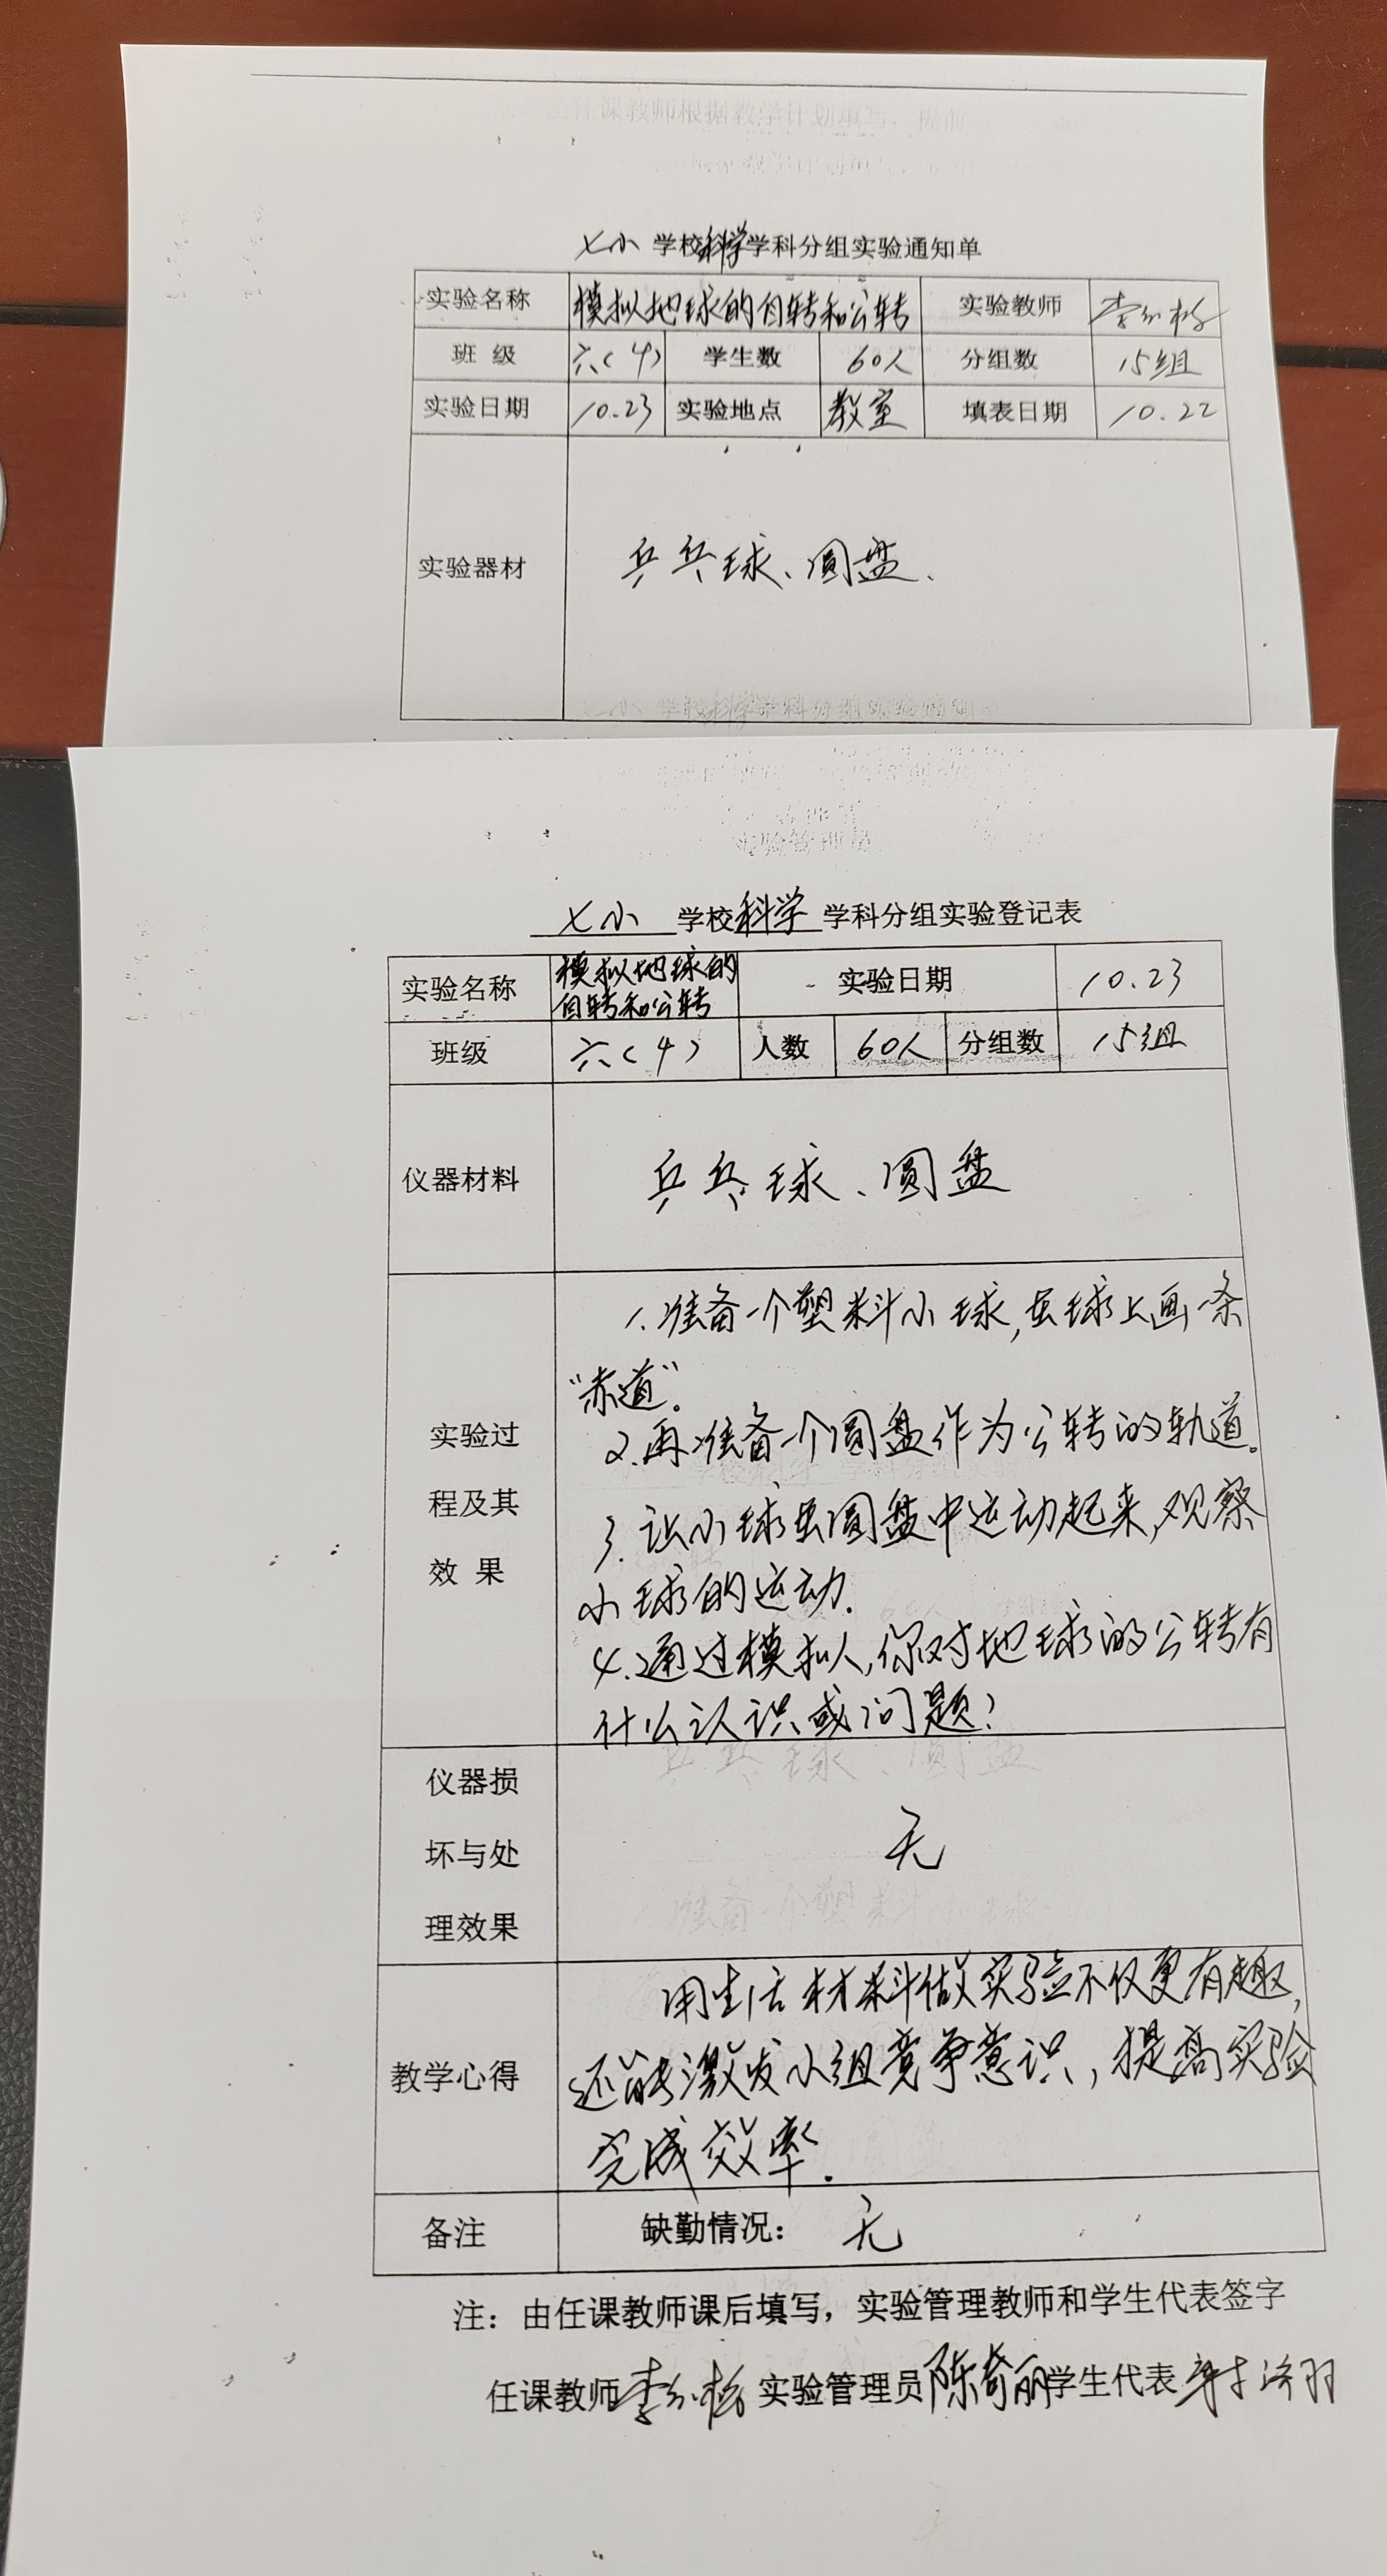 七小 学校科学学科分组实验通知单
实验名称 模拟地球的自转和公转 实验教师
班 级 六(4) 学生数 60人 分组数 15组
实验日期 10.23 实验地点 教室 填表日期 10.22
实验器材 乒乓球、圆盘、
七小 学校科学 学科分组实验登记表
实验名称 模拟地球的自转和公转 实验日期 10.23
班级 六(4) 人数 60人 分组数 15组
仪器材料 乒乓球、圆盘
1.准备一个塑料小球,在球上画一条
“赤道”.
实验过
2.再准备一个圆盘作为公转的轨道。
程及其
3.让小球在圆盘中运动起来,观察
效 果
小球的运动.
4.通过模拟,你对地球的公转有
什么认识或问题?
仪器损
坏与处
无
理效果
用生活材料做实验不仅更有趣,
教学心得
还能激发小组竞争意识,提高实验
完成效率.
备注 缺勤情况: 无
注:由任课教师课后填写,实验管理教师和学生代表签字
任课教师 实验管理员陈奇丽学生代表